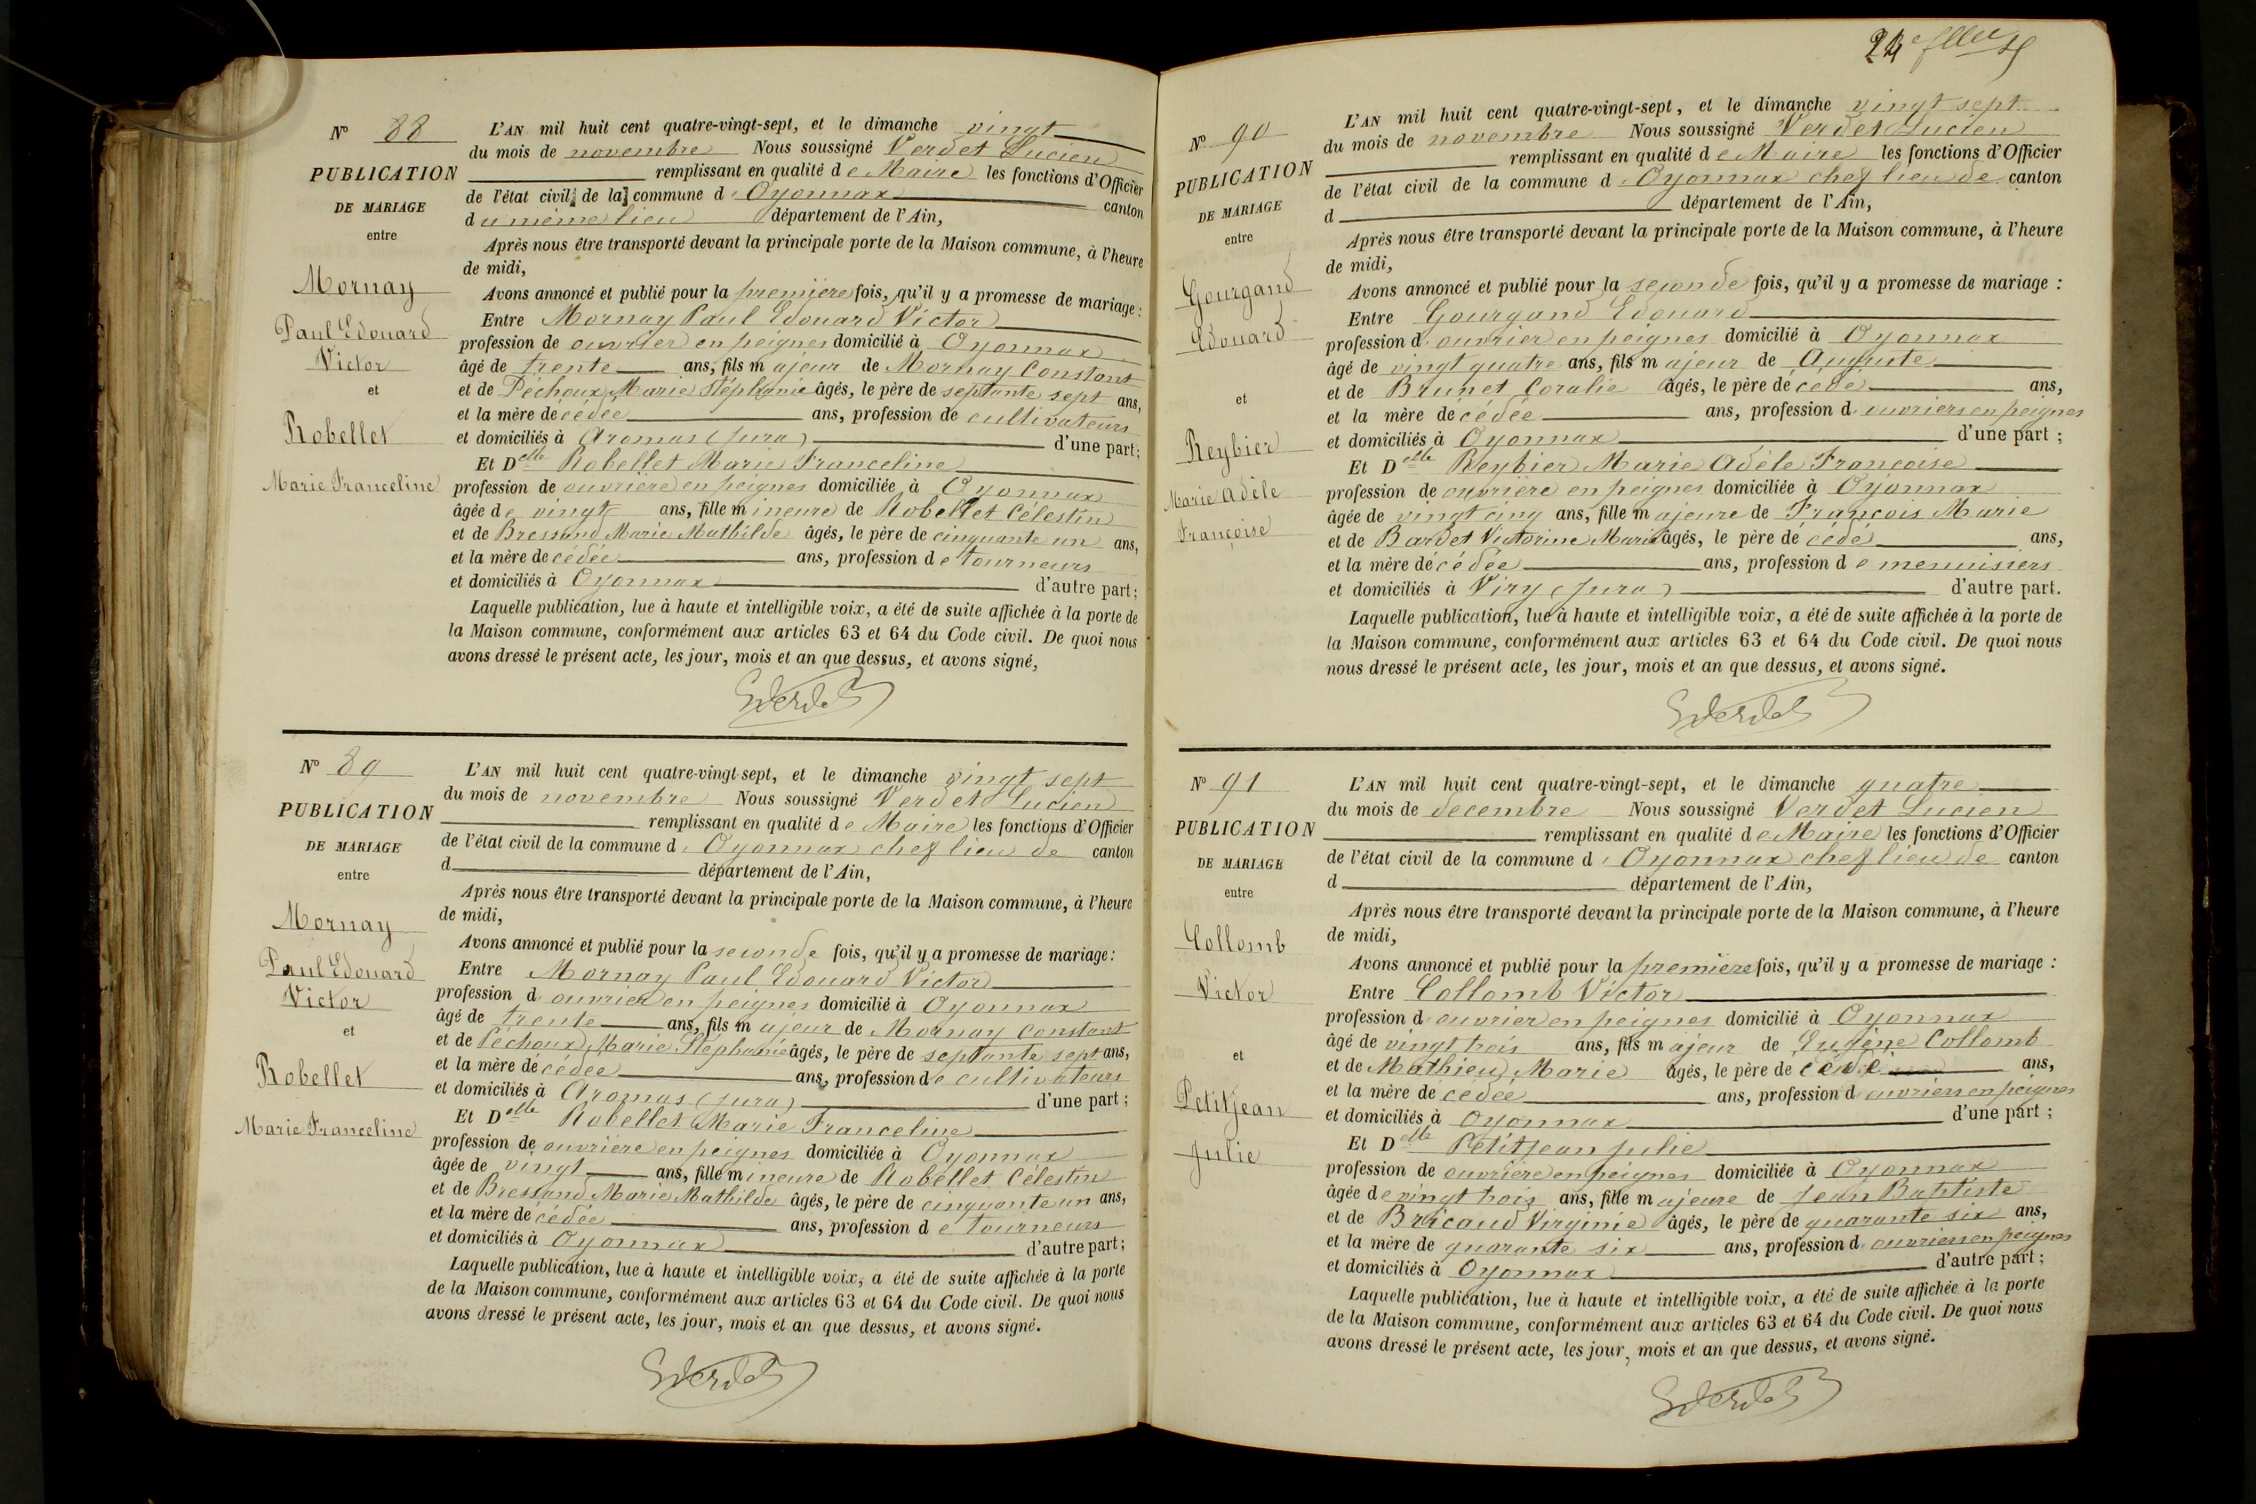 Nº 88
PUBLICATION
DE MARIAGE
entre
Mornay
Paul Edouard
Victor
et
Robellet
Marie Franceline
L'AN mil huit cent quatre-vingt-sept, et le dimanche vingt
du mois de novembre Nous soussigné Verdet Lucien
remplissant en qualité de Maire les fonctions d'Officier
de l'état civil de la commune d Oyonnax canton
du même lieu département de l'Ain,
Après nous être transporté devant la principale porte de la Maison commune, à l'heure
de midi,
Avons annoncé et publié pour la première fois, qu'il y a promesse de mariage :
Entre Mornay Paul Edouard Victor
profession de ouvrier en peignes domicilié à Oyonnax
âgé de trente ans, fils majeur de Mornay Constant
et de Péchoux Marie Stéphanie âgés, le père de septante sept ans,
et la mère décédée ans, profession de cultivateurs
et domiciliés à Aromas (Jura) d'une part ;
Et Delle Robellet Marie Franceline
profession de ouvrière en peignes domiciliée à Oyonnax
âgée de vingt ans, fille mineure de Robellet Célestin
et de Bressand Marie Mathilde âgés, le père de cinquante un ans,
et la mère décédée ans, profession de tourneurs
et domiciliés à Oyonnax d'autre part ;
Laquelle publication, lue à haute et intelligible voix, a été de suite affichée à la porte de
la Maison commune, conformément aux articles 63 et 64 du Code civil. De quoi nous
avons dressé le présent acte, les jour, mois et an que dessus, et avons signé,
Nº 89
PUBLICATION
DE MARIAGE
entre
Mornay
Paul Edouard
Victor
et
Robellet
Marie Franceline
L'AN mil huit cent quatre-vingt-sept, et le dimanche vingt sept
du mois de novembre Nous soussigné Verdet Lucien
remplissant en qualité de Maire les fonctions d'Officier
de l'état civil de la commune d Oyonnax chef lieu de canton
d département de l'Ain,
Après nous être transporté devant la principale porte de la Maison commune, à l'heure
de midi,
Avons annoncé et publié pour la seconde fois, qu'il y a promesse de mariage :
Entre Mornay Paul Edouard Victor
profession d ouvrier en peignes domicilié à Oyonnax
âgé de trente ans, fils majeur de Mornay Constant
et de Péchoux Marie Stéphanie âgés, le père de septante sept ans,
et la mère décédée ans, profession de cultivateurs
et domiciliés à Aromas (Jura) d'une part ;
Et Delle Robellet Marie Franceline
profession de ouvrière en peignes domiciliée à Oyonnax
âgée de vingt ans, fille mineure de Robellet Célestin
et de Bressand Marie Mathilde âgés, le père de cinquante un ans,
et la mère décédée ans, profession de tourneurs
et domiciliés à Oyonnax d'autre part ;
Laquelle publication, lue à haute et intelligible voix, a été de suite affichée à la porte
de la Maison commune, conformément aux articles 63 et 64 du Code civil. De quoi nous
avons dressé le présent acte, les jour, mois et an que dessus, et avons signé.
24e
Nº 90
PUBLICATION
DE MARIAGE
entre
Gourgand
Edouard
et
Reybier
Marie Adèle
Françoise
L'AN mil huit cent quatre-vingt-sept, et le dimanche vingt sept
du mois de novembre Nous soussigné Verdet Lucien
remplissant en qualité de Maire les fonctions d'Officier
de l'état civil de la commune d Oyonnax chef lieu de canton
d département de l'Ain,
Après nous être transporté devant la principale porte de la Maison commune, à l'heure
de midi,
Avons annoncé et publié pour la seconde fois, qu'il y a promesse de mariage :
Entre Gourgand Edouard
profession d ouvrier en peignes domicilié à Oyonnax
âgé de vingt quatre ans, fils majeur de Auguste
et de Brunet Coralie âgés, le père décédé ans,
et la mère décédée ans, profession d ouvriers en peignes
et domiciliés à Oyonnax d'une part ;
Et Delle Reybier Marie Adèle Françoise
profession de ouvrière en peignes domiciliée à Oyonnax
âgée de vingt cinq ans, fille majeure de François Marie
et de Bardet Victorine Marie âgés, le père décédé ans,
et la mère décédée ans, profession de menuisiers
et domiciliés à Viry (Jura) d'autre part.
Laquelle publication, lue à haute et intelligible voix, a été de suite affichée à la porte de
la Maison commune, conformément aux articles 63 et 64 du Code civil. De quoi nous
nous dressé le présent acte, les jour, mois et an que dessus, et avons signé.
Nº 91
PUBLICATION
DE MARIAGE
entre
Collomb
Victor
et
Petitjean
Julie
L'AN mil huit cent quatre-vingt-sept, et le dimanche quatre
du mois de decembre Nous soussigné Verdet Lucien
remplissant en qualité de Maire les fonctions d'Officier
de l'état civil de la commune d Oyonnax chef lieu de canton
d département de l'Ain,
Après nous être transporté devant la principale porte de la Maison commune, à l'heure
de midi,
Avons annoncé et publié pour la première fois, qu'il y a promesse de mariage :
Entre Collomb Victor
profession d ouvrier en peignes domicilié à Oyonnax
âgé de vingt trois ans, fils majeur de Eugène Collomb
et de Mathieu Marie âgés, le père de cédé ans,
et la mère de cédée ans, profession d ouvriers en peignes
et domiciliés à Oyonnax d'une part ;
Et Delle Petitjean Julie
profession de ouvrière en peignes domiciliée à Oyonnax
âgée de vingt trois ans, fille majeure de Jean Baptiste
et de Bricaud Virginie âgés, le père de quarante six ans,
et la mère de quarante six ans, profession d ouvriers en peignes
et domiciliés à Oyonnax d'autre part ;
Laquelle publication, lue à haute et intelligible voix, a été de suite affichée à la porte
de la Maison commune, conformément aux articles 63 et 64 du Code civil. De quoi nous
avons dressé le présent acte, les jour, mois et an que dessus, et avons signé.